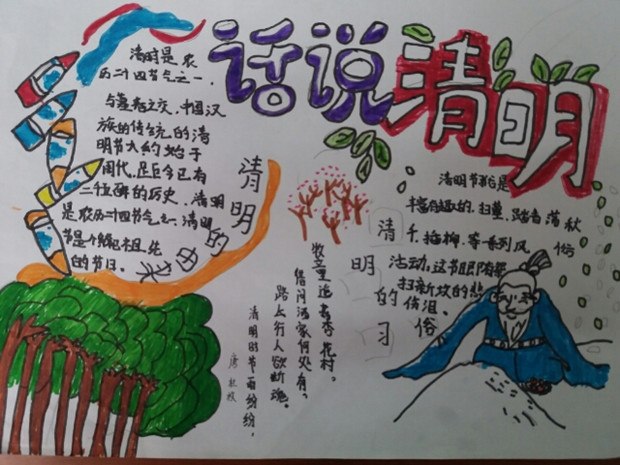 话说清明
清明是农
历二十四节气之一,
之交,中国汉
族的传统的清
明节大约始于
周代,距今已有
二千五百年的历史,清明
是农历二十四节气之一,清明
节是个祭祀祖先
的节日。
清明的由来
清明节是
有趣的,扫墓,踏青荡秋
千,插柳,等一系列风俗
活动,这节
扫新坟的悲
伤泪
清明的习俗
清明时节雨纷纷,
路上行人欲断魂。
借问酒家何处有,
杏花村。